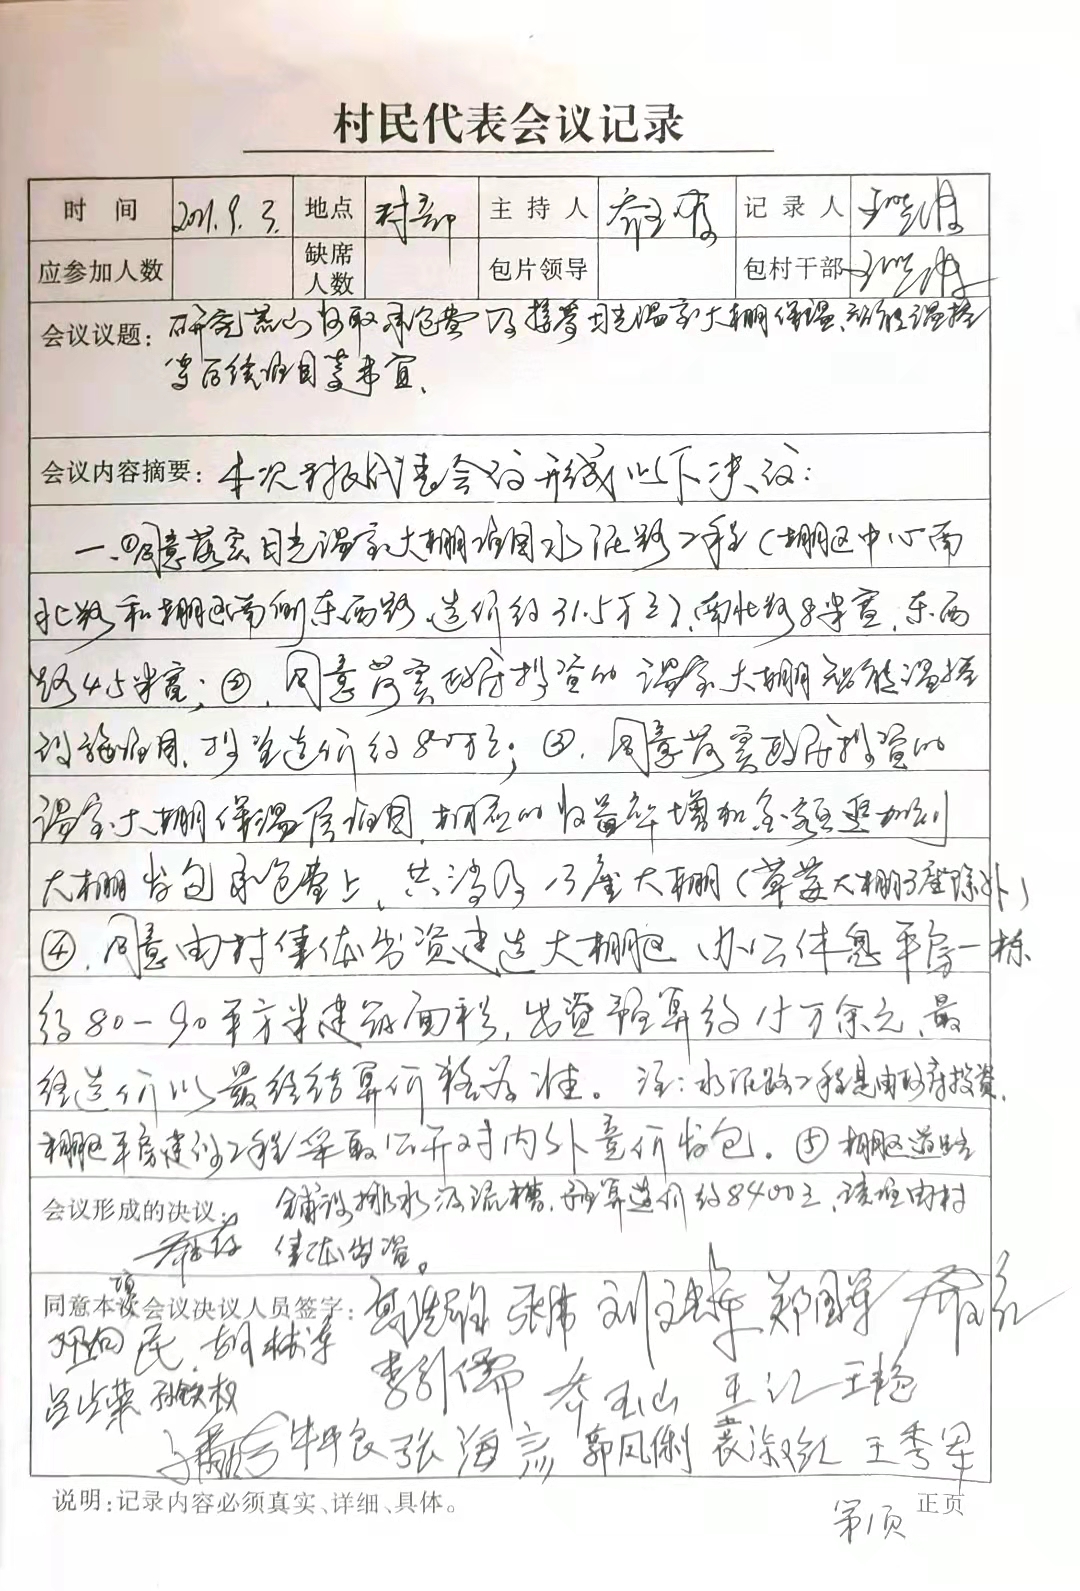 村民代表会议记录
时间 2021.9.3. 地点 村部 主持人 记录人
应参加人数 缺席人数 包片领导 包村干部
会议议题：研究荒山收取承包费及接受日光温室大棚保温、智能温控
等后续项目等事宜.
会议内容摘要：本次村民代表会议形成以下决议：
一、①同意落实日光温室大棚项目水泥路工程（棚区中心南
北路和棚区南侧东西路，造价约31.5万元），南北路8米宽，东西
路4.5米宽；②、同意落实政府投资的温室大棚智能温控
设施项目，投资造价约80万元；③、同意落实政府投资的
温室大棚保温层项目，相应的收益年增加金额要加到
大棚发包承包费上，共涉及13座大棚（草莓大棚3座除外）
④、同意由村集体出资建造大棚区办公休息平房一栋
约80－90平方米建筑面积，出资预算约15万余元，最
终造价以最终结算价格为准。注：水泥路工程是由政府投资，
棚区平房建设工程采取公开对内外竞价发包。⑤棚区道路
会议形成的决议： 铺设排水及流槽，预算造价约8400元，该项由村
集体出资。
同意本项次会议决议人员签字： 张伟 郑国军
民 胡树军 李引儒 乔玉山 王江 王艳
吕占荣 孙铁权
张海彦 郭凤俐 袁淑红 王秀军
说明：记录内容必须真实、详细、具体。 正页
第1页